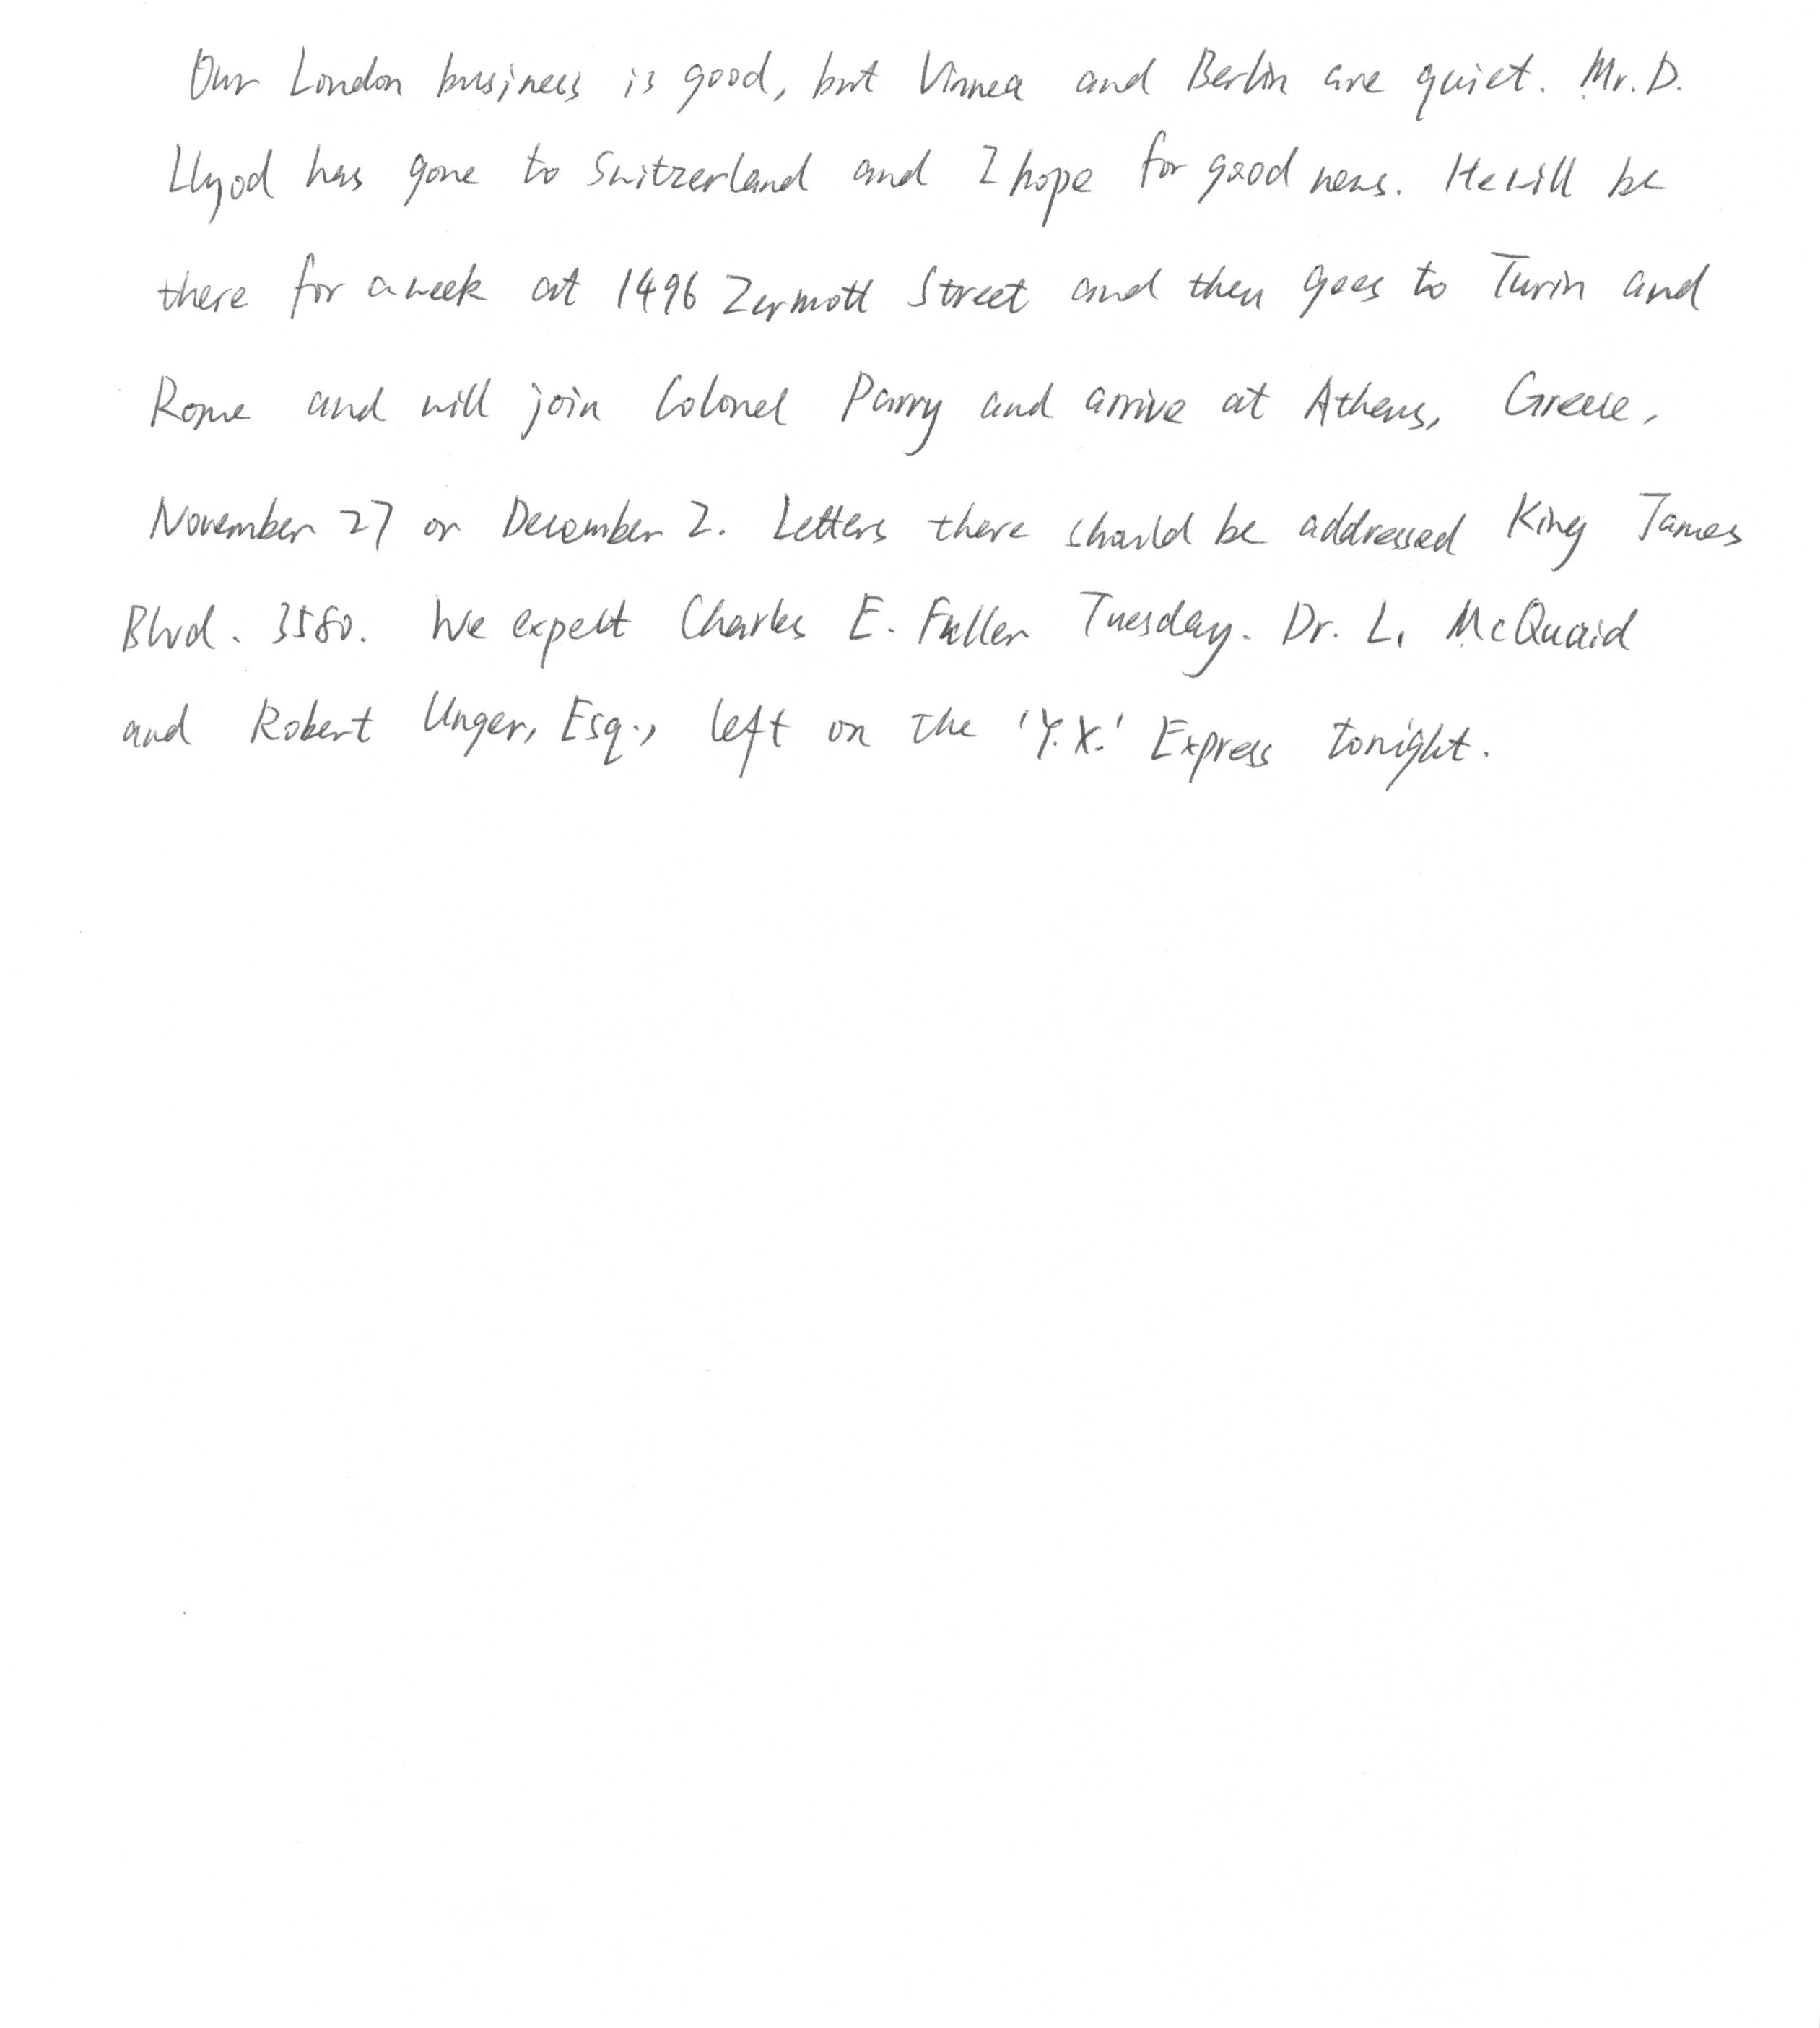 Our London business is good, but Vinnea and Berlin are quiet. Mr. D.
Llyod has gone to Switzerland and I hope for good news. He will be
there for a week at 1496 Zermott Street and then goes to Turin and
Rome and will join Colonel Parry and arrive at Athens, Greece,
November 27 or December 2. Letters there should be addressed King James
Blvd. 3580. We expect Charles E. Fuller Tuesday. Dr. L. McQuaid
and Robert Unger, Esq., left on the 'Y.X.' Express tonight.